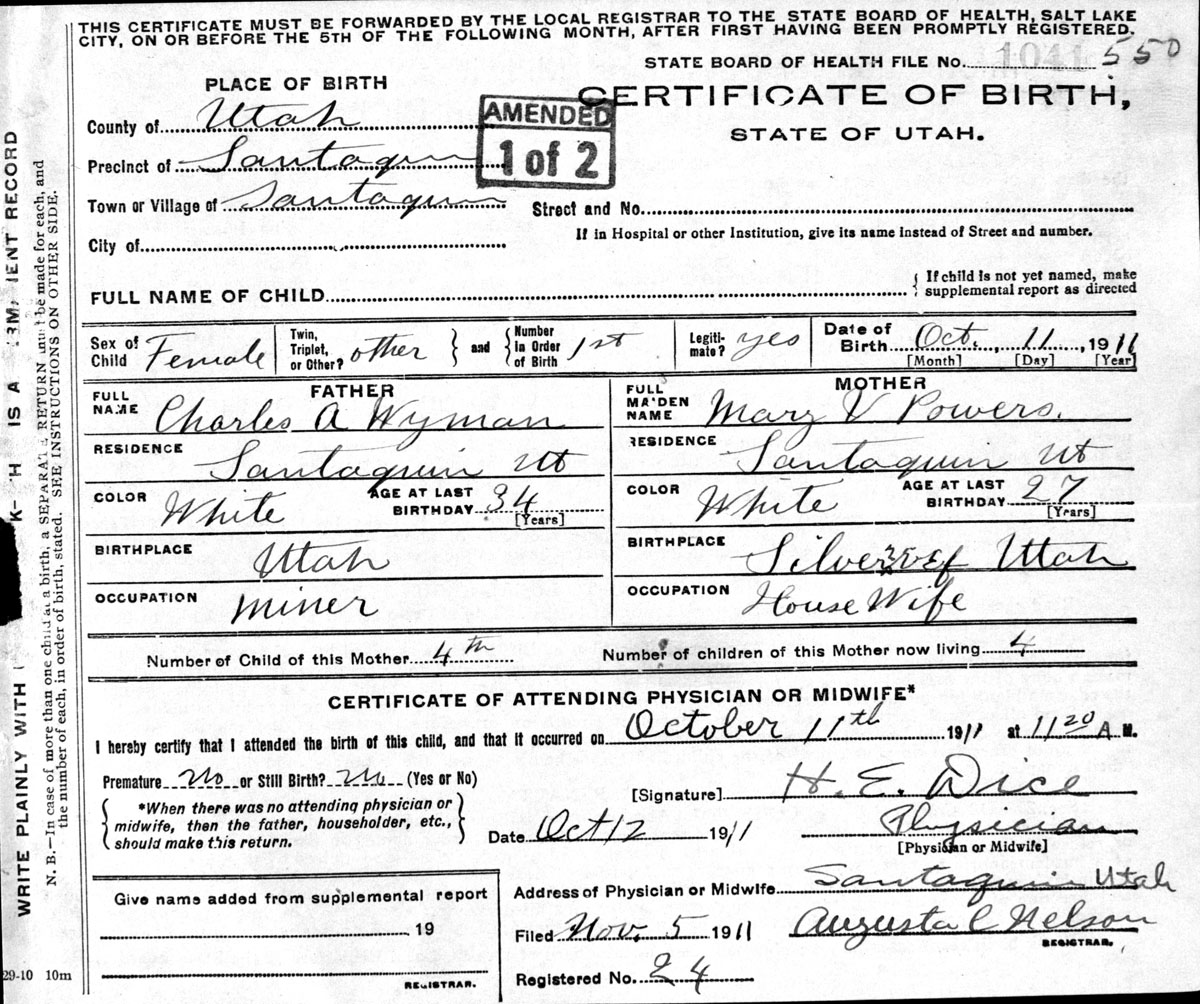 THIS CERTIFICATE MUST BE FORWARDED BY THE LOCAL REGISTRAR TO THE STATE BOARD OF HEALTH, SALT LAKE
CITY, ON OR BEFORE THE 5TH OF THE FOLLOWING MONTH, AFTER FIRST HAVING BEEN PROMPTLY REGISTERED.
STATE BOARD OF HEALTH FILE No. 1041 550
PLACE OF BIRTH
CERTIFICATE OF BIRTH,
STATE OF UTAH.
AMENDED
1 of 2
County of Utah
Precinct of Santaquin
Town or Village of Santaquin
Street and No.
City of
If in Hospital or other Institution, give its name instead of Street and number.
FULL NAME OF CHILD
{ If child is not yet named, make
supplemental report as directed
Sex of Child Female
Twin, Triplet, or Other? other } and { Number in Order of Birth 1st
Legiti-mate? yes
Date of Birth Oct. 11, 1911
[Month] [Day] [Year]
FATHER
FULL NAME Charles A Wyman
RESIDENCE Santaquin Ut
COLOR White AGE AT LAST BIRTHDAY 34
[Years]
BIRTHPLACE Utah
OCCUPATION Miner
MOTHER
FULL MAIDEN NAME Mary V Powers.
RESIDENCE Santaquin Ut
COLOR White AGE AT LAST BIRTHDAY 27
[Years]
BIRTHPLACE Silver Utah
OCCUPATION House Wife
Number of Child of this Mother 4th Number of children of this Mother now living 4
CERTIFICATE OF ATTENDING PHYSICIAN OR MIDWIFE*
I hereby certify that I attended the birth of this child, and that it occurred on October 11th 1911 at 11 20 A M.
Premature No or Still Birth? No (Yes or No)
{ *When there was no attending physician or
midwife, then the father, householder, etc.,
should make this return. }
[Signature] H. E. Dice
Date Oct 12 1911 Physician
[Physician or Midwife]
Give name added from supplemental report
19
REGISTRAR.
Address of Physician or Midwife Santaquin Utah
Filed Nov. 5 1911 Augusta C Nelson
REGISTRAR.
Registered No. 24
29-10 10m
WRITE PLAINLY WITH IS A RECORD
N. B.—In case of more than one child at a birth, a SEPARATE RETURN must be made for each, and
the number of each, in order of birth, stated. SEE INSTRUCTIONS ON OTHER SIDE.